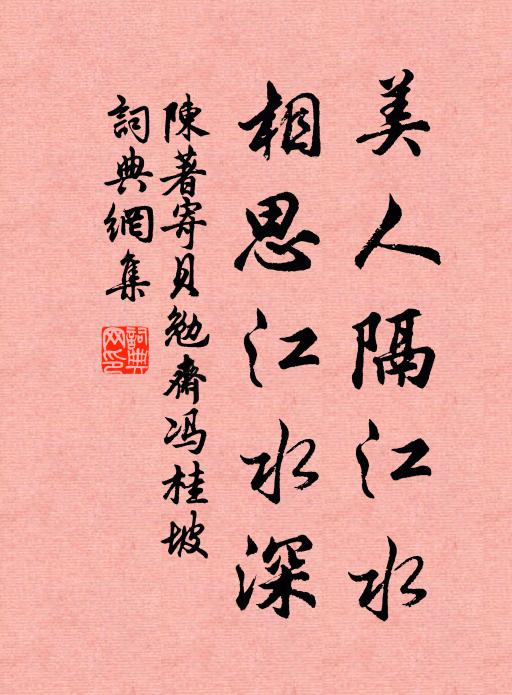 美人隔江水
相思江水深
陳著寄貝勉齋冯桂坡
詞典網集
詞典网印